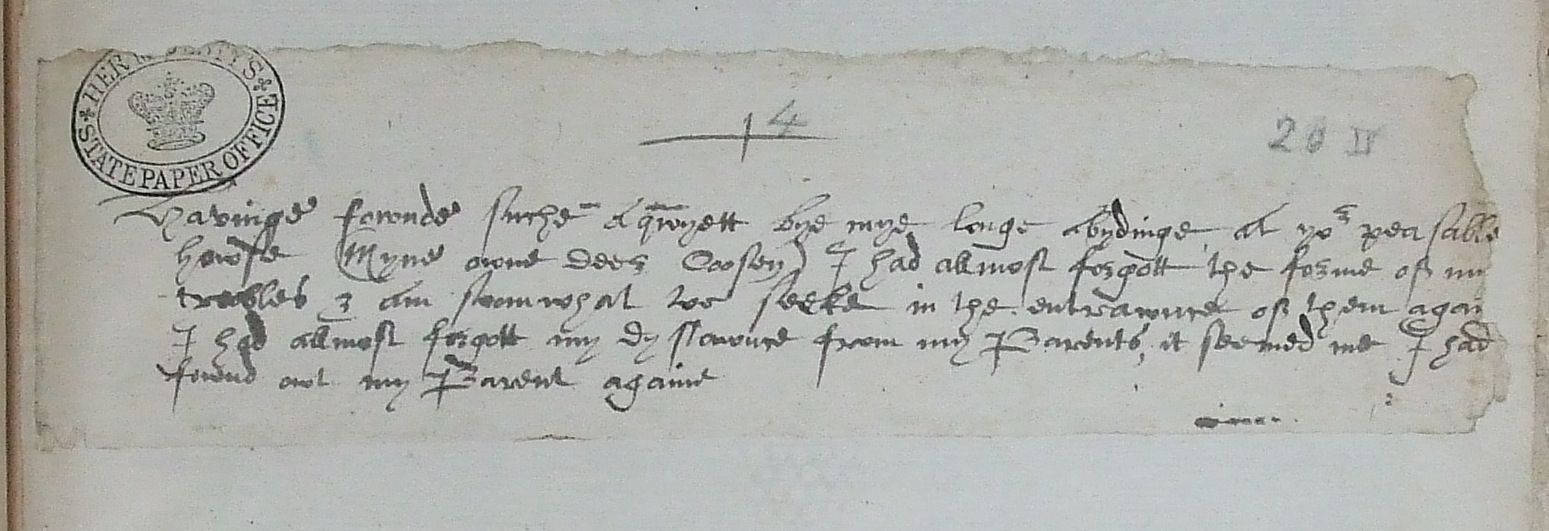 HER MAJESTY'S STATE PAPER OFFICE
4
20 II
Havinge fownde suche a qwyett bye mye longe abydinge at yor peasable
howse (Myne owne deer Coosen) I had allmost forgott the forme of my
trobles & am somwhat to seeke in the entraunce of them agai
I had allmost forgott my dystaunce from my Parents, it seemed me I had
fownd owt my Parent againe